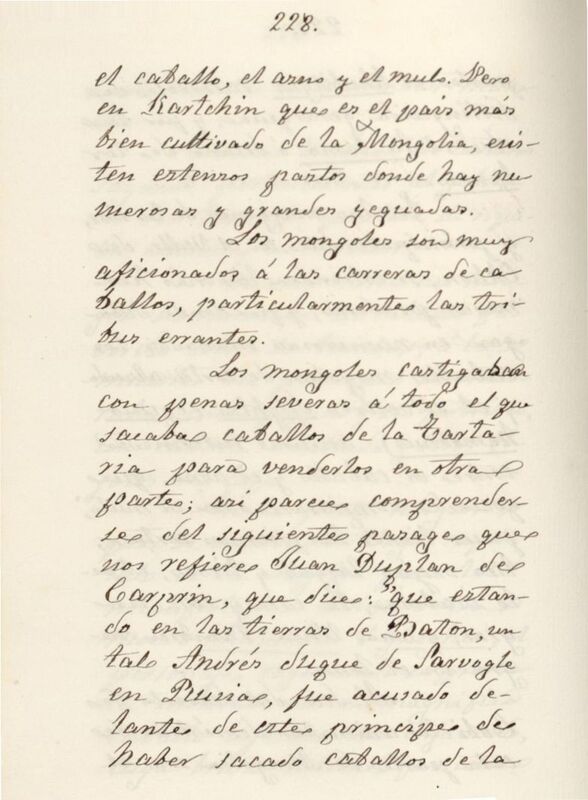 228.
el caballo, el asno y el mulo. Pero
en Kartchin que es el pais más
bien cultivado de la Mongolia, exis-
ten estensos pastos donde hay nu
merosas y grandes yeguadas.
Los mongoles son muy
aficionados á las carreras de ca
ballos, particularmente las tri-
bus errantes.
Los mongoles castigaban
con penas severas á todo el que
sacaba caballos de la Tarta-
ria para venderlos en otra
parte; asi parece comprender-
se del siguiente pasage que
nos refiere Juan Duplan de
Carprin, que dice: "que estan-
do en las tierras de Baton, un
tal Andrés duque de Sarvogle
en Rusia, fue acusado de-
lante de este principe de
haber sacado caballos de la